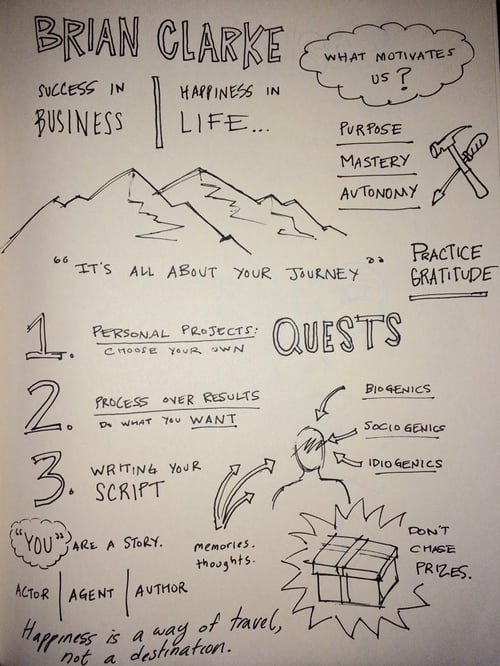 BRIAN CLARKE
WHAT MOTIVATES
US?
SUCCESS IN
BUSINESS
HAPPINESS IN
LIFE...
PURPOSE
MASTERY
AUTONOMY
"IT'S ALL ABOUT YOUR JOURNEY"
PRACTICE
GRATITUDE
1. PERSONAL PROJECTS:
CHOOSE YOUR OWN
QUESTS
2. PROCESS OVER RESULTS
DO WHAT YOU WANT
BIOGENICS
SOCIOGENICS
IDIOGENICS
3. WRITING YOUR
SCRIPT
"YOU" ARE A STORY.
memories.
thoughts.
DON'T
CHASE
PRIZES.
ACTOR | AGENT | AUTHOR
Happiness is a way of travel,
not a destination.